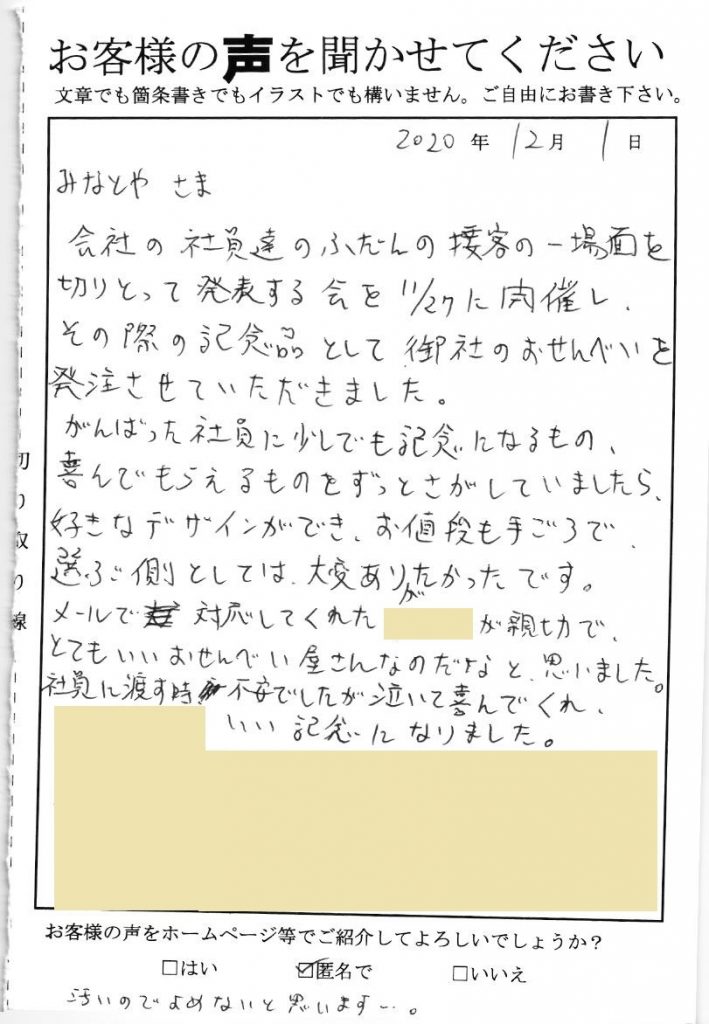 お客様の声を聞かせてください
文章でも箇条書きでもイラストでも構いません。ご自由にお書き下さい。
2020年 12月 1日
みなとや さま
会社の社員達のふだんの接客の一場面を
切りとって発表する会を11/27に開催し、
その際の記念品として御社のおせんべいを
発注させていただきました。
がんばった社員に少しでも記念になるもの、
喜んでもらえるものをずっとさがしていましたら、
好きなデザインができ、お値段も手ごろで、
選ぶ側としては、大変ありがたかったです。
メールで対応してくれた が親切で、
とてもいいおせんべい屋さんなのだなと、思いました。
社員に渡す時 不安でしたが泣いて喜んでくれ、
いい記念になりました。
切り取り線
お客様の声をホームページ等でご紹介してよろしいでしょうか？
□はい ☑匿名で □いいえ
汚いのでよめないと思います…。